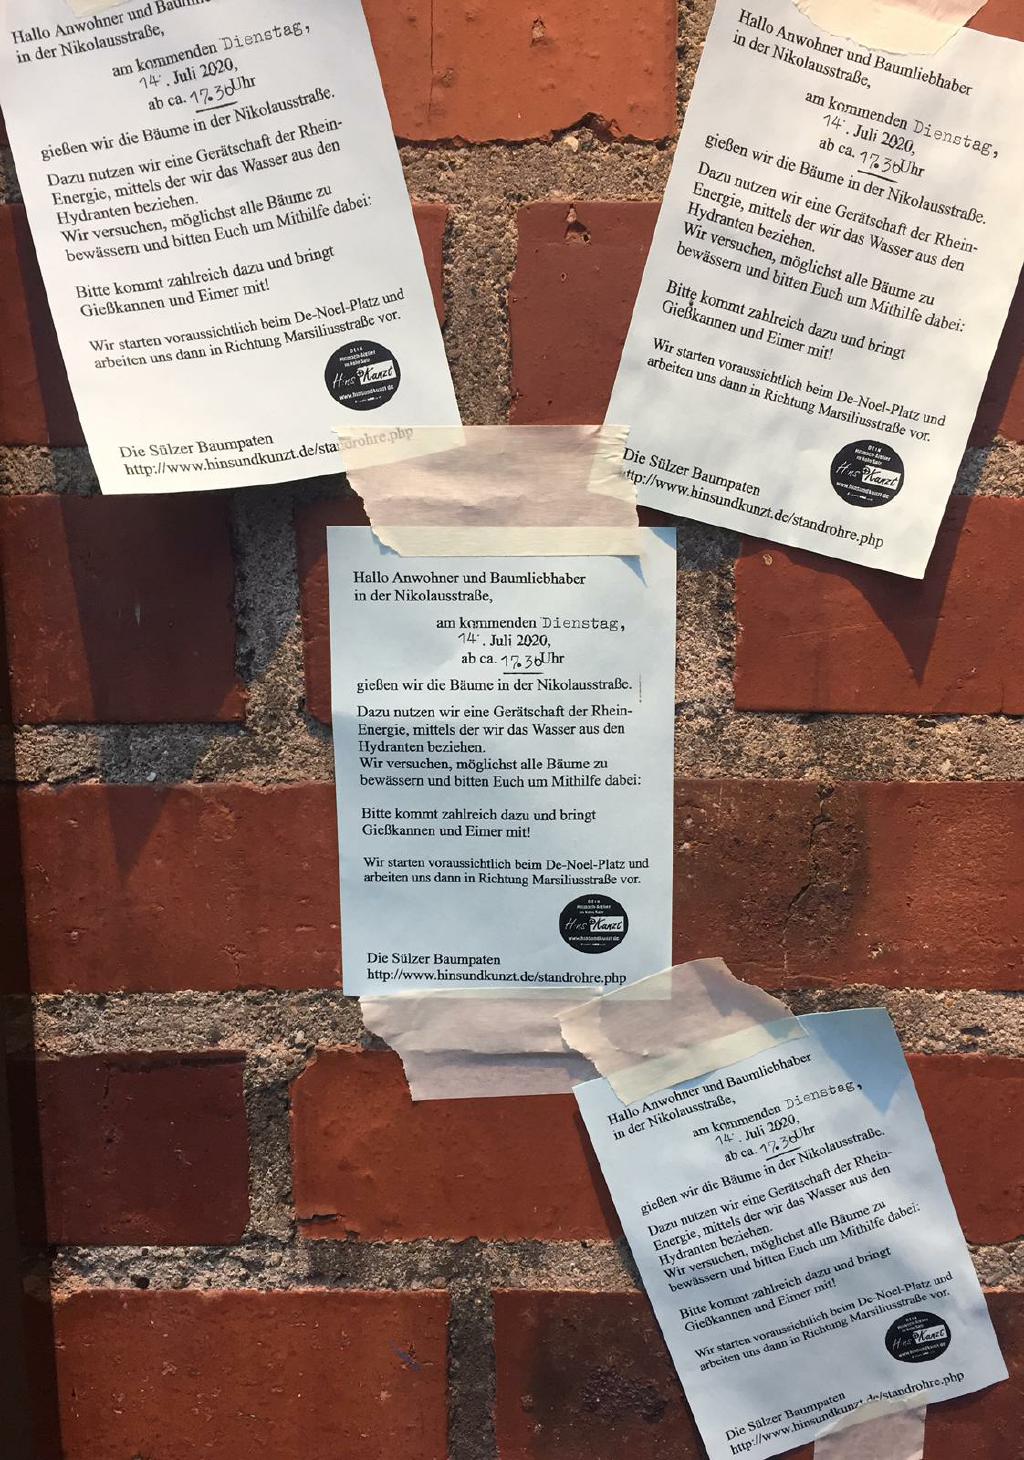 Hallo Anwohner und
in der Nikolausstraße,
am kommenden Dienstag,
14. Juli 2020,
ab ca. 17.30Uhr
gießen wir die Bäume in der Nikolausstraße.
Dazu nutzen wir eine Gerätschaft der Rhein-
Energie, mittels der wir das Wasser aus den
Hydranten beziehen.
Wir versuchen, möglichst alle Bäume zu
bewässern und bitten Euch um Mithilfe dabei:
Bitte kommt zahlreich dazu und bringt
Gießkannen und Eimer mit!
Wir starten voraussichtlich beim De-Noel-Platz und
arbeiten uns dann in Richtung Marsiliusstraße vor.
Hins & Kunzt
www.hinsundkunzt.de
Die Sülzer Baumpaten
http://www.hinsundkunzt.de/standrohre.php
Hallo Anwohner und Baumliebhaber
in der Nikolausstraße,
am kommenden Dienstag,
14. Juli 2020,
ab ca. 17.30Uhr
gießen wir die Bäume in der Nikolausstraße.
Dazu nutzen wir eine Gerätschaft der Rhein-
Energie, mittels der wir das Wasser aus den
Hydranten beziehen.
Wir versuchen, möglichst alle Bäume zu
bewässern und bitten Euch um Mithilfe dabei:
Bitte kommt zahlreich dazu und bringt
Gießkannen und Eimer mit!
Wir starten voraussichtlich beim De-Noel-Platz und
arbeiten uns dann in Richtung Marsiliusstraße vor.
Hins & Kunzt
www.hinsundkunzt.de
Die Sülzer Baumpaten
http://www.hinsundkunzt.de/standrohre.php
Hallo Anwohner und Baumliebhaber
in der Nikolausstraße,
am kommenden Dienstag,
14. Juli 2020,
ab ca. 17.30Uhr
gießen wir die Bäume in der Nikolausstraße.
Dazu nutzen wir eine Gerätschaft der Rhein-
Energie, mittels der wir das Wasser aus den
Hydranten beziehen.
Wir versuchen, möglichst alle Bäume zu
bewässern und bitten Euch um Mithilfe dabei:
Bitte kommt zahlreich dazu und bringt
Gießkannen und Eimer mit!
Wir starten voraussichtlich beim De-Noel-Platz und
arbeiten uns dann in Richtung Marsiliusstraße vor.
Hins & Kunzt
www.hinsundkunzt.de
Die Sülzer Baumpaten
http://www.hinsundkunzt.de/standrohre.php
Hallo Anwohner und Baumliebhaber
in der Nikolausstraße,
am kommenden Dienstag,
14. Juli 2020,
ab ca. 17.30Uhr
gießen wir die Bäume in der Nikolausstraße.
Dazu nutzen wir eine Gerätschaft der Rhein-
Energie, mittels der wir das Wasser aus den
Hydranten beziehen.
Wir versuchen, möglichst alle Bäume zu
bewässern und bitten Euch um Mithilfe dabei:
Bitte kommt zahlreich dazu und bringt
Gießkannen und Eimer mit!
Wir starten voraussichtlich beim De-Noel-Platz und
arbeiten uns dann in Richtung Marsiliusstraße vor.
Hins & Kunzt
www.hinsundkunzt.de
Die Sülzer Baumpaten
http://www.hinsundkunzt.de/standrohre.php